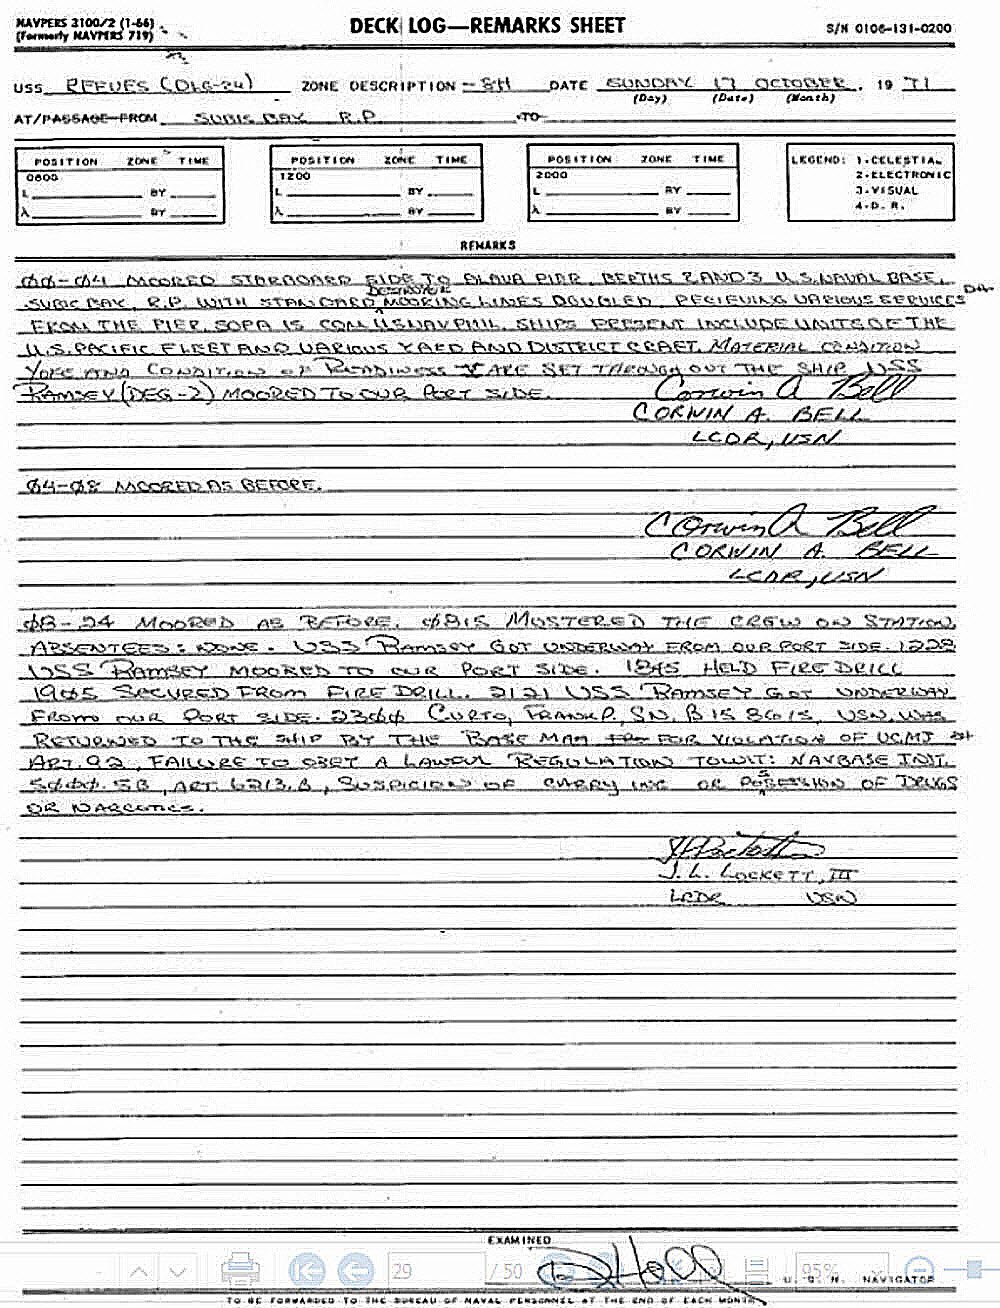 NAVPERS 3100/2 (1-66)
(Formerly NAVPERS 719)
DECK LOG—REMARKS SHEET
S/N 0106-131-0200
USS REEVES (DLG-24) ZONE DESCRIPTION -8H DATE SUNDAY 17 OCTOBER, 19 71
(Day) (Date) (Month)
AT/PASSAGE FROM SUBIC BAY R.P. TO
POSITION ZONE TIME
0800
L BY
λ BY
POSITION ZONE TIME
1200
L BY
λ BY
POSITION ZONE TIME
2000
L BY
λ BY
LEGEND: 1-CELESTIAL
2-ELECTRONIC
3-VISUAL
4-D. R.
REMARKS
00-04 MOORED STARBOARD SIDE TO ALAVA PIER, BERTHS 2 AND 3 U.S. NAVAL BASE,
SUBIC BAY, R.P. WITH STANDARD DESTROYER MOORING LINES DOUBLED. RECIEVING VARIOUS SERVICES
FROM THE PIER. SOPA IS COM USNAVPHIL. SHIPS PRESENT INCLUDE UNITS OF THE
U.S. PACIFIC FLEET AND VARIOUS YARD AND DISTRICT CRAFT. MATERIAL CONDITION
YOKE AND CONDITION OF READINESS V ARE SET THROUGHOUT THE SHIP. USS
RAMSEY (DEG-2) MOORED TO OUR PORT SIDE. Corwin A Bell
CORWIN A. BELL
LCDR, USN
04-08 MOORED AS BEFORE.
Corwin A Bell
CORWIN A. BELL
LCDR, USN
08-24 MOORED AS BEFORE. 0815 MUSTERED THE CREW ON STATION,
ABSENTEES: NONE. USS RAMSEY GOT UNDERWAY FROM OUR PORT SIDE. 1228
USS RAMSEY MOORED TO OUR PORT SIDE. 1845 HELD FIRE DRILL
1905 SECURED FROM FIRE DRILL. 2121 USS RAMSEY GOT UNDERWAY
FROM OUR PORT SIDE. 2300 CURTO, FRANK P., SN, B15 86 15, USN, WAS
RETURNED TO THE SHIP BY THE BASE MAA FOR VIOLATION OF UCMJ
ART. 92, FAILURE TO OBEY A LAWFUL REGULATION TOWIT: NAVBASE INST.
5000.5B, ART. 6213.B, SUSPICION OF CARRYING OR POSSESSION OF DRUGS
OR NARCOTICS.
J. L. LOCKETT, III
LCDR USN
EXAMINED
29 / 50
95%
U. S. N. NAVIGATOR
TO BE FORWARDED TO THE BUREAU OF NAVAL PERSONNEL AT THE END OF EACH MONTH